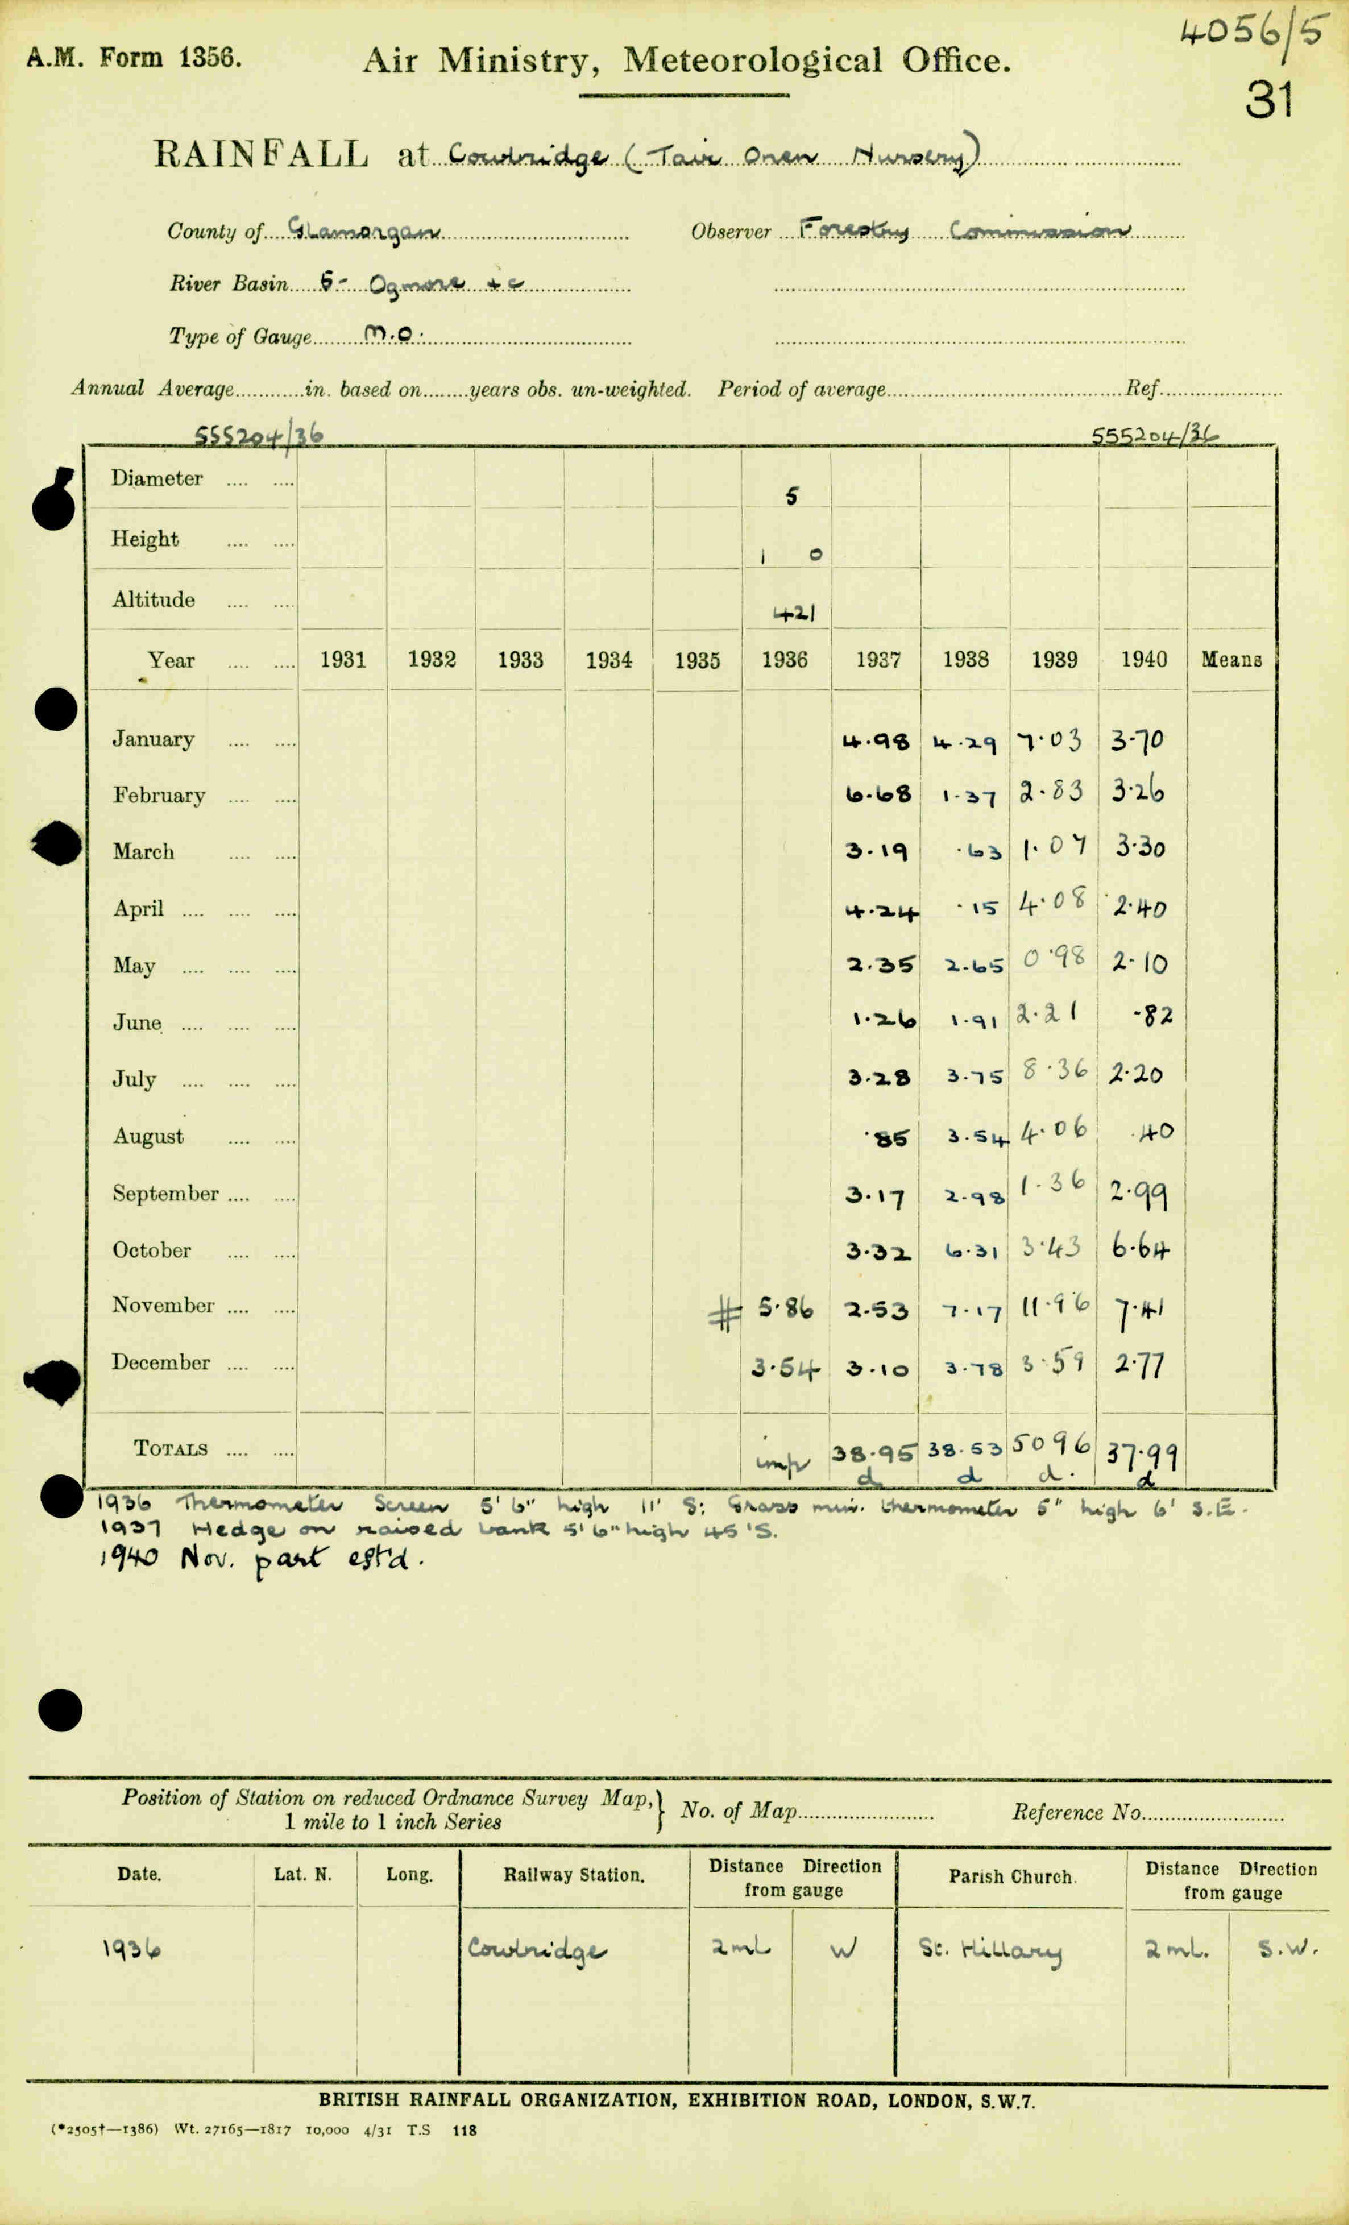 4056/5
A.M. Form 1356. Air Ministry, Meteorological Office.
31
RAINFALL at Cowbridge (Tair Onen Nursery)
County of Glamorgan Observer Forestry Commission
River Basin 5- Ogmore &c
Type of Gauge M.O.
Annual Average in. based on years obs. un-weighted. Period of average Ref.
555204/36 555204/36
Diameter 5
Height 1 0
Altitude 421
Year 1931 1932 1933 1934 1935 1936 1937 1938 1939 1940 Means
January 4.98 4.29 7.03 3.70
February 6.68 1.37 2.83 3.26
March 3.19 .63 1.07 3.30
April 4.24 .15 4.08 2.40
May 2.35 2.65 0.98 2.10
June 1.26 1.91 2.21 .82
July 3.28 3.75 8.36 2.20
August .85 3.54 4.06 .40
September 3.17 2.98 1.36 2.99
October 3.32 6.31 3.43 6.64
November # 5.86 2.53 7.17 11.96 7.41
December 3.54 3.10 3.78 3.59 2.77
TOTALS imp 38.95 38.53 50 96 37.99
d d d. d
1936 Thermometer Screen 5' 6" high 11' S: Grass min. thermometer 5" high 6' S.E.
1937 Hedge on raised bank 5' 6" high 45' S.
1940 Nov. part est'd.
Position of Station on reduced Ordnance Survey Map, } No. of Map Reference No.
1 mile to 1 inch Series
Date. Lat. N. Long. Railway Station. Distance Direction from gauge Parish Church. Distance Direction from gauge
1936 Cowbridge 2 ml W St. Hillary 2 ml. S.W.
BRITISH RAINFALL ORGANIZATION, EXHIBITION ROAD, LONDON, S.W.7.
(*2505†—1386) Wt. 27165—1817 10,000 4/31 T.S 118